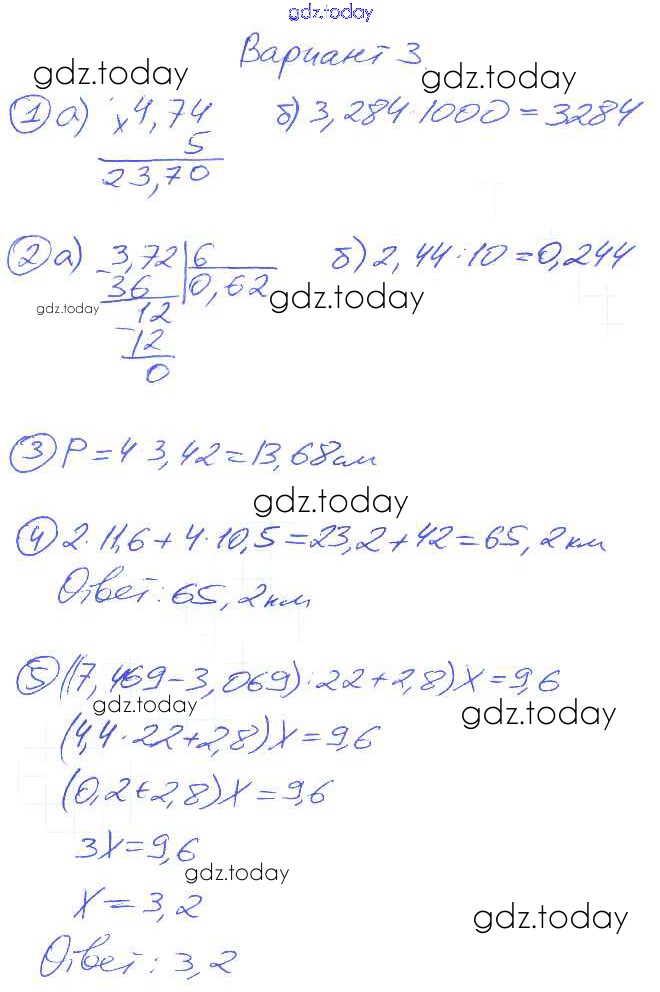 gdz.today
Вариант 3.
gdz.today gdz.today
① а) × 4,74 б) 3,284 · 1000 = 3284
5
23,70
② а) 3,72 | 6 б) 2,44 : 10 = 0,244
- 36 | 0,62 gdz.today
gdz.today 12
- 12
0
③ P = 4 · 3,42 = 13,68 см
gdz.today
④ 2 · 11,6 + 4 · 10,5 = 23,2 + 42 = 65,2 км
Ответ: 65,2 км
⑤ ((7,469 - 3,069) : 22 + 2,8) X = 9,6
gdz.today gdz.today
(4,4 : 22 + 2,8) X = 9,6
(0,2 + 2,8) X = 9,6
3X = 9,6
gdz.today
X = 3,2
gdz.today
Ответ: 3,2